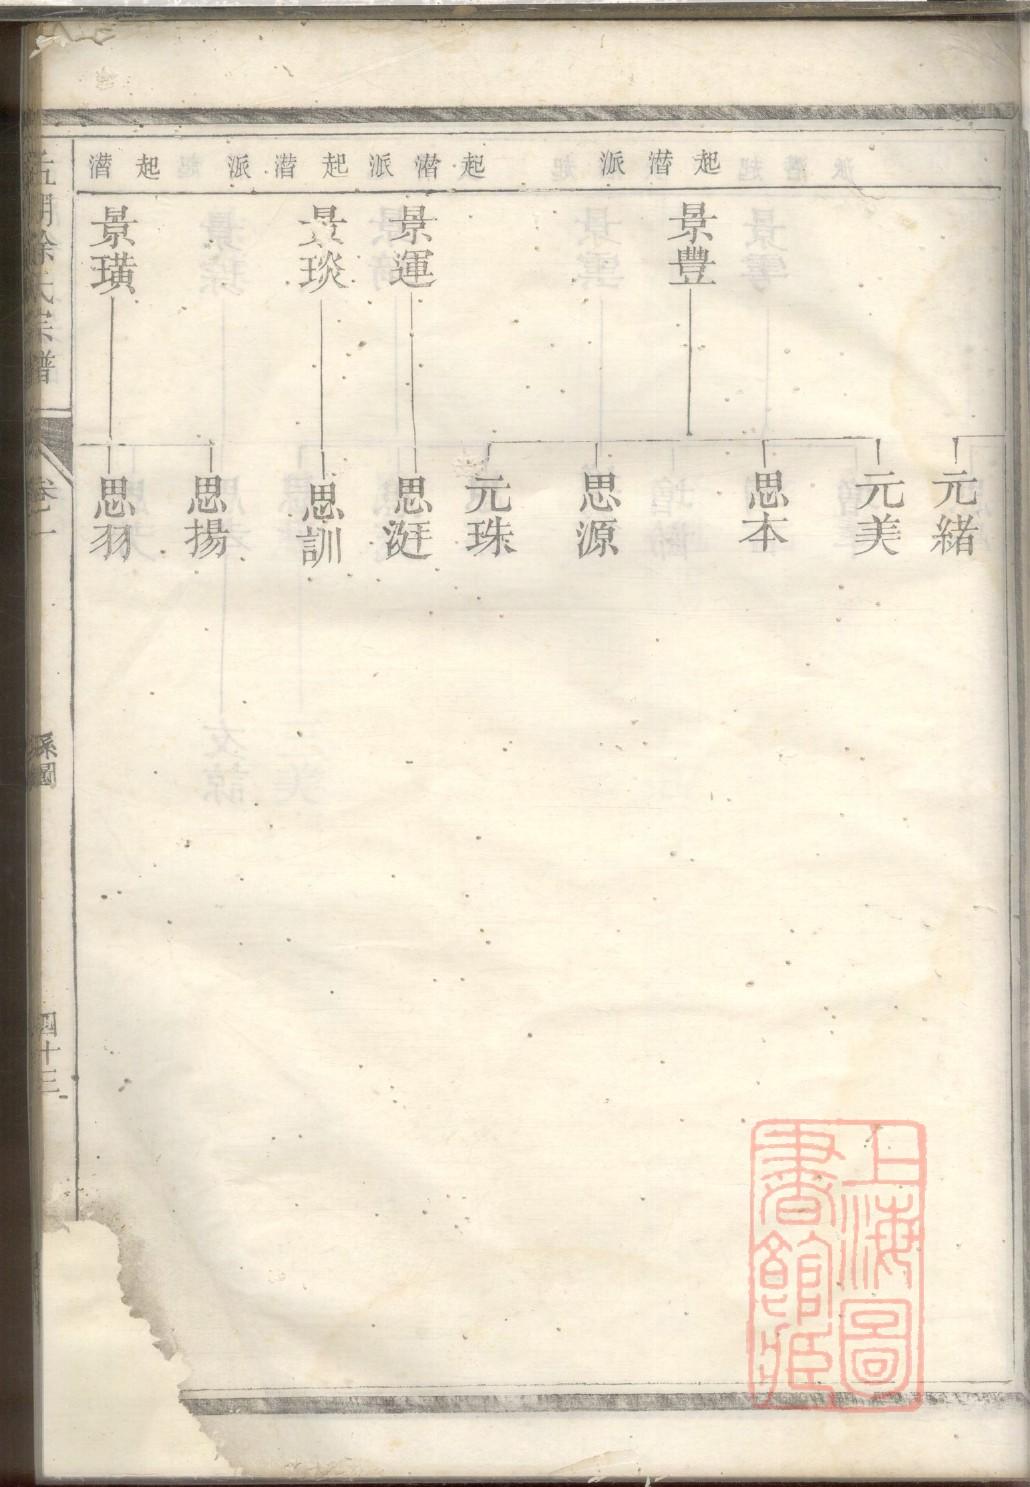 起潛派
起潛派
起潛派
起潛
景豐
景運
景琰
景璜
元緒
元美
思本
思源
元珠
思涏
思訓
思揚
思羽
徐氏宗譜
卷一
系圖
四十三
上海圖
書館藏